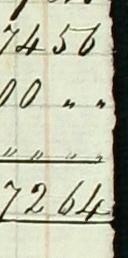 7456
00 " "
" " " "
7264